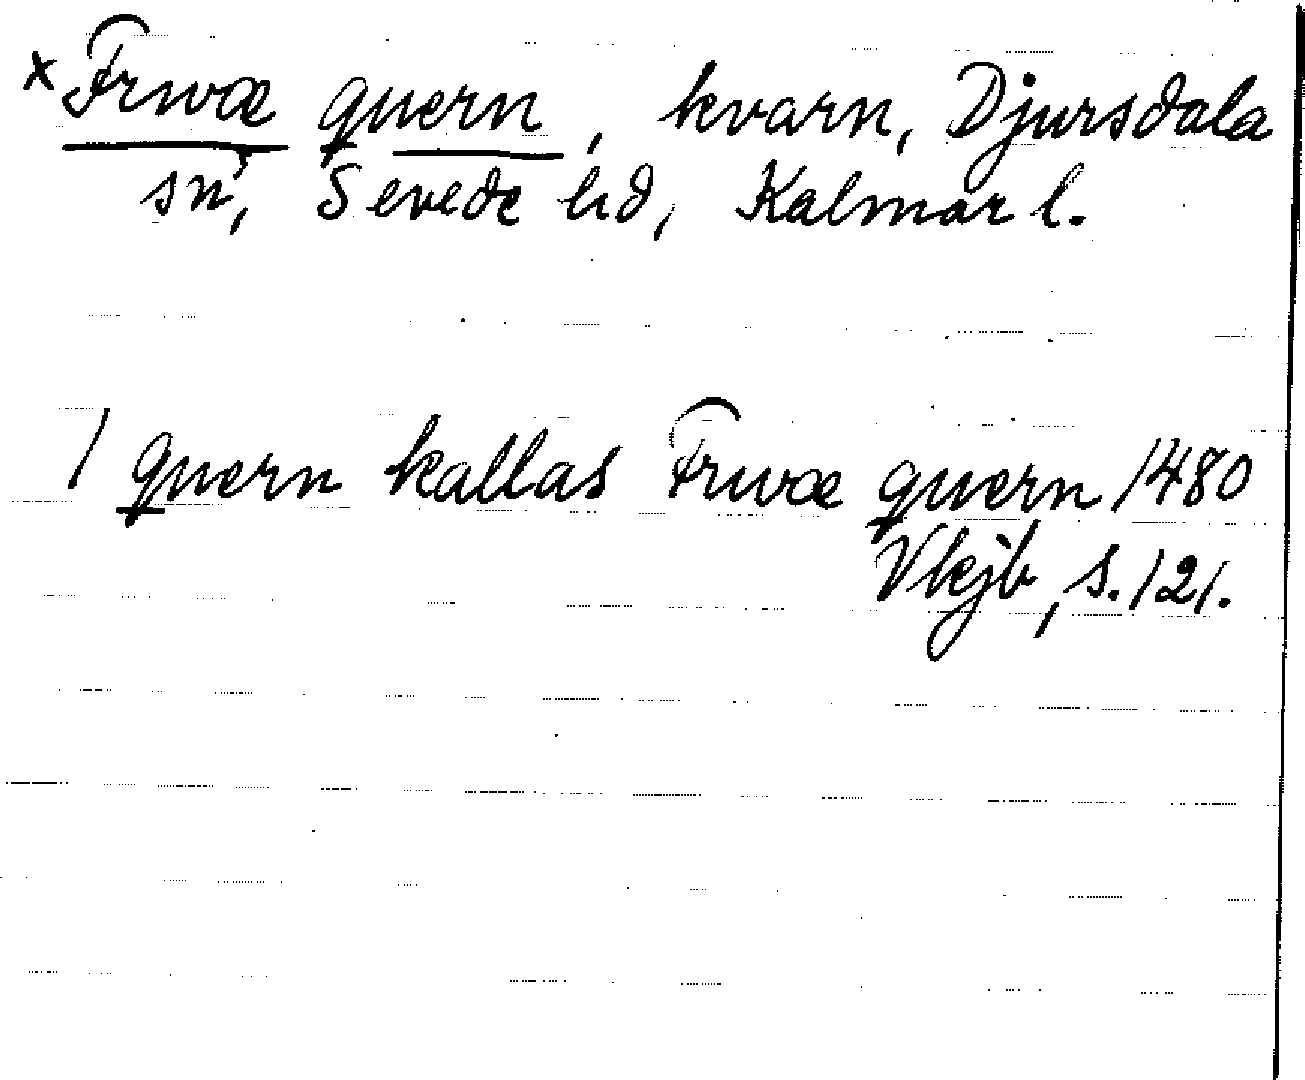 x Fruvæ quern, kvarn, Djursdala
sn, Sevede hd, Kalmar l.
1 quern kallas Fruvæ quern 1480
Vkjb, s. 121.